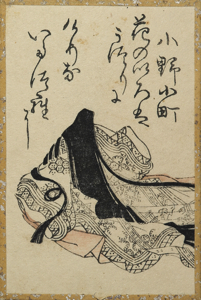 小野小町
花のいろは
うつりに
けりな
いたつら
に